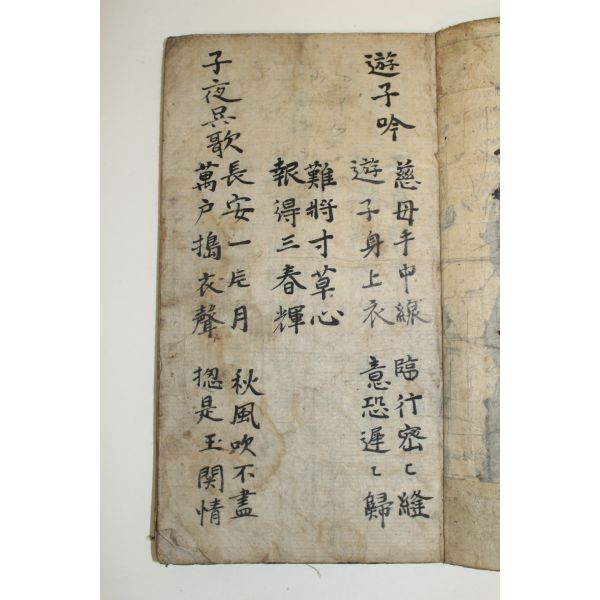 遊子吟
慈母手中線
遊子身上衣
臨行密〻縫
意恐遲〻歸
難將寸草心
報得三春輝
子夜吳歌
長安一片月
萬戶搗衣聲
秋風吹不盡
揔是玉関情